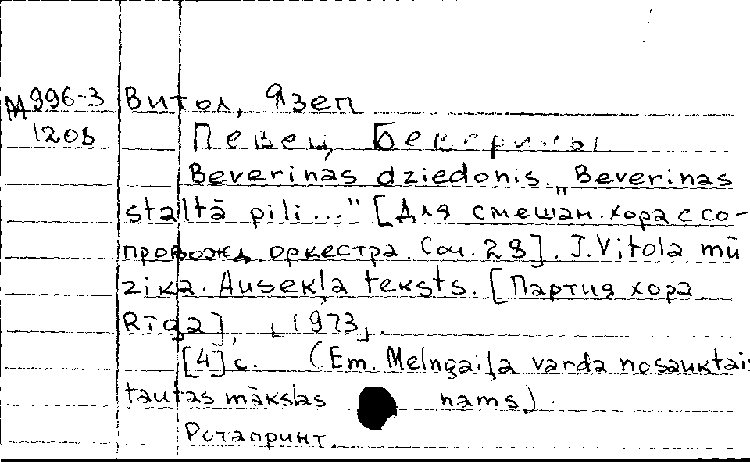 М996-3 Витол, Язеп
1208 Певец Беверины
Beverinas dziedonis. „Beverinas
staltā pilī..." [Для смешан. хора с со-
провожд. оркестра. Соч. 28]. J. Vītola mū
zika. Ausekļa teksts. [Партия хора
Rīga], [1973].
[4] с. (Em. Melngaiļa vārda nosauktais
tautas mākslas nams).
Ротапринт.